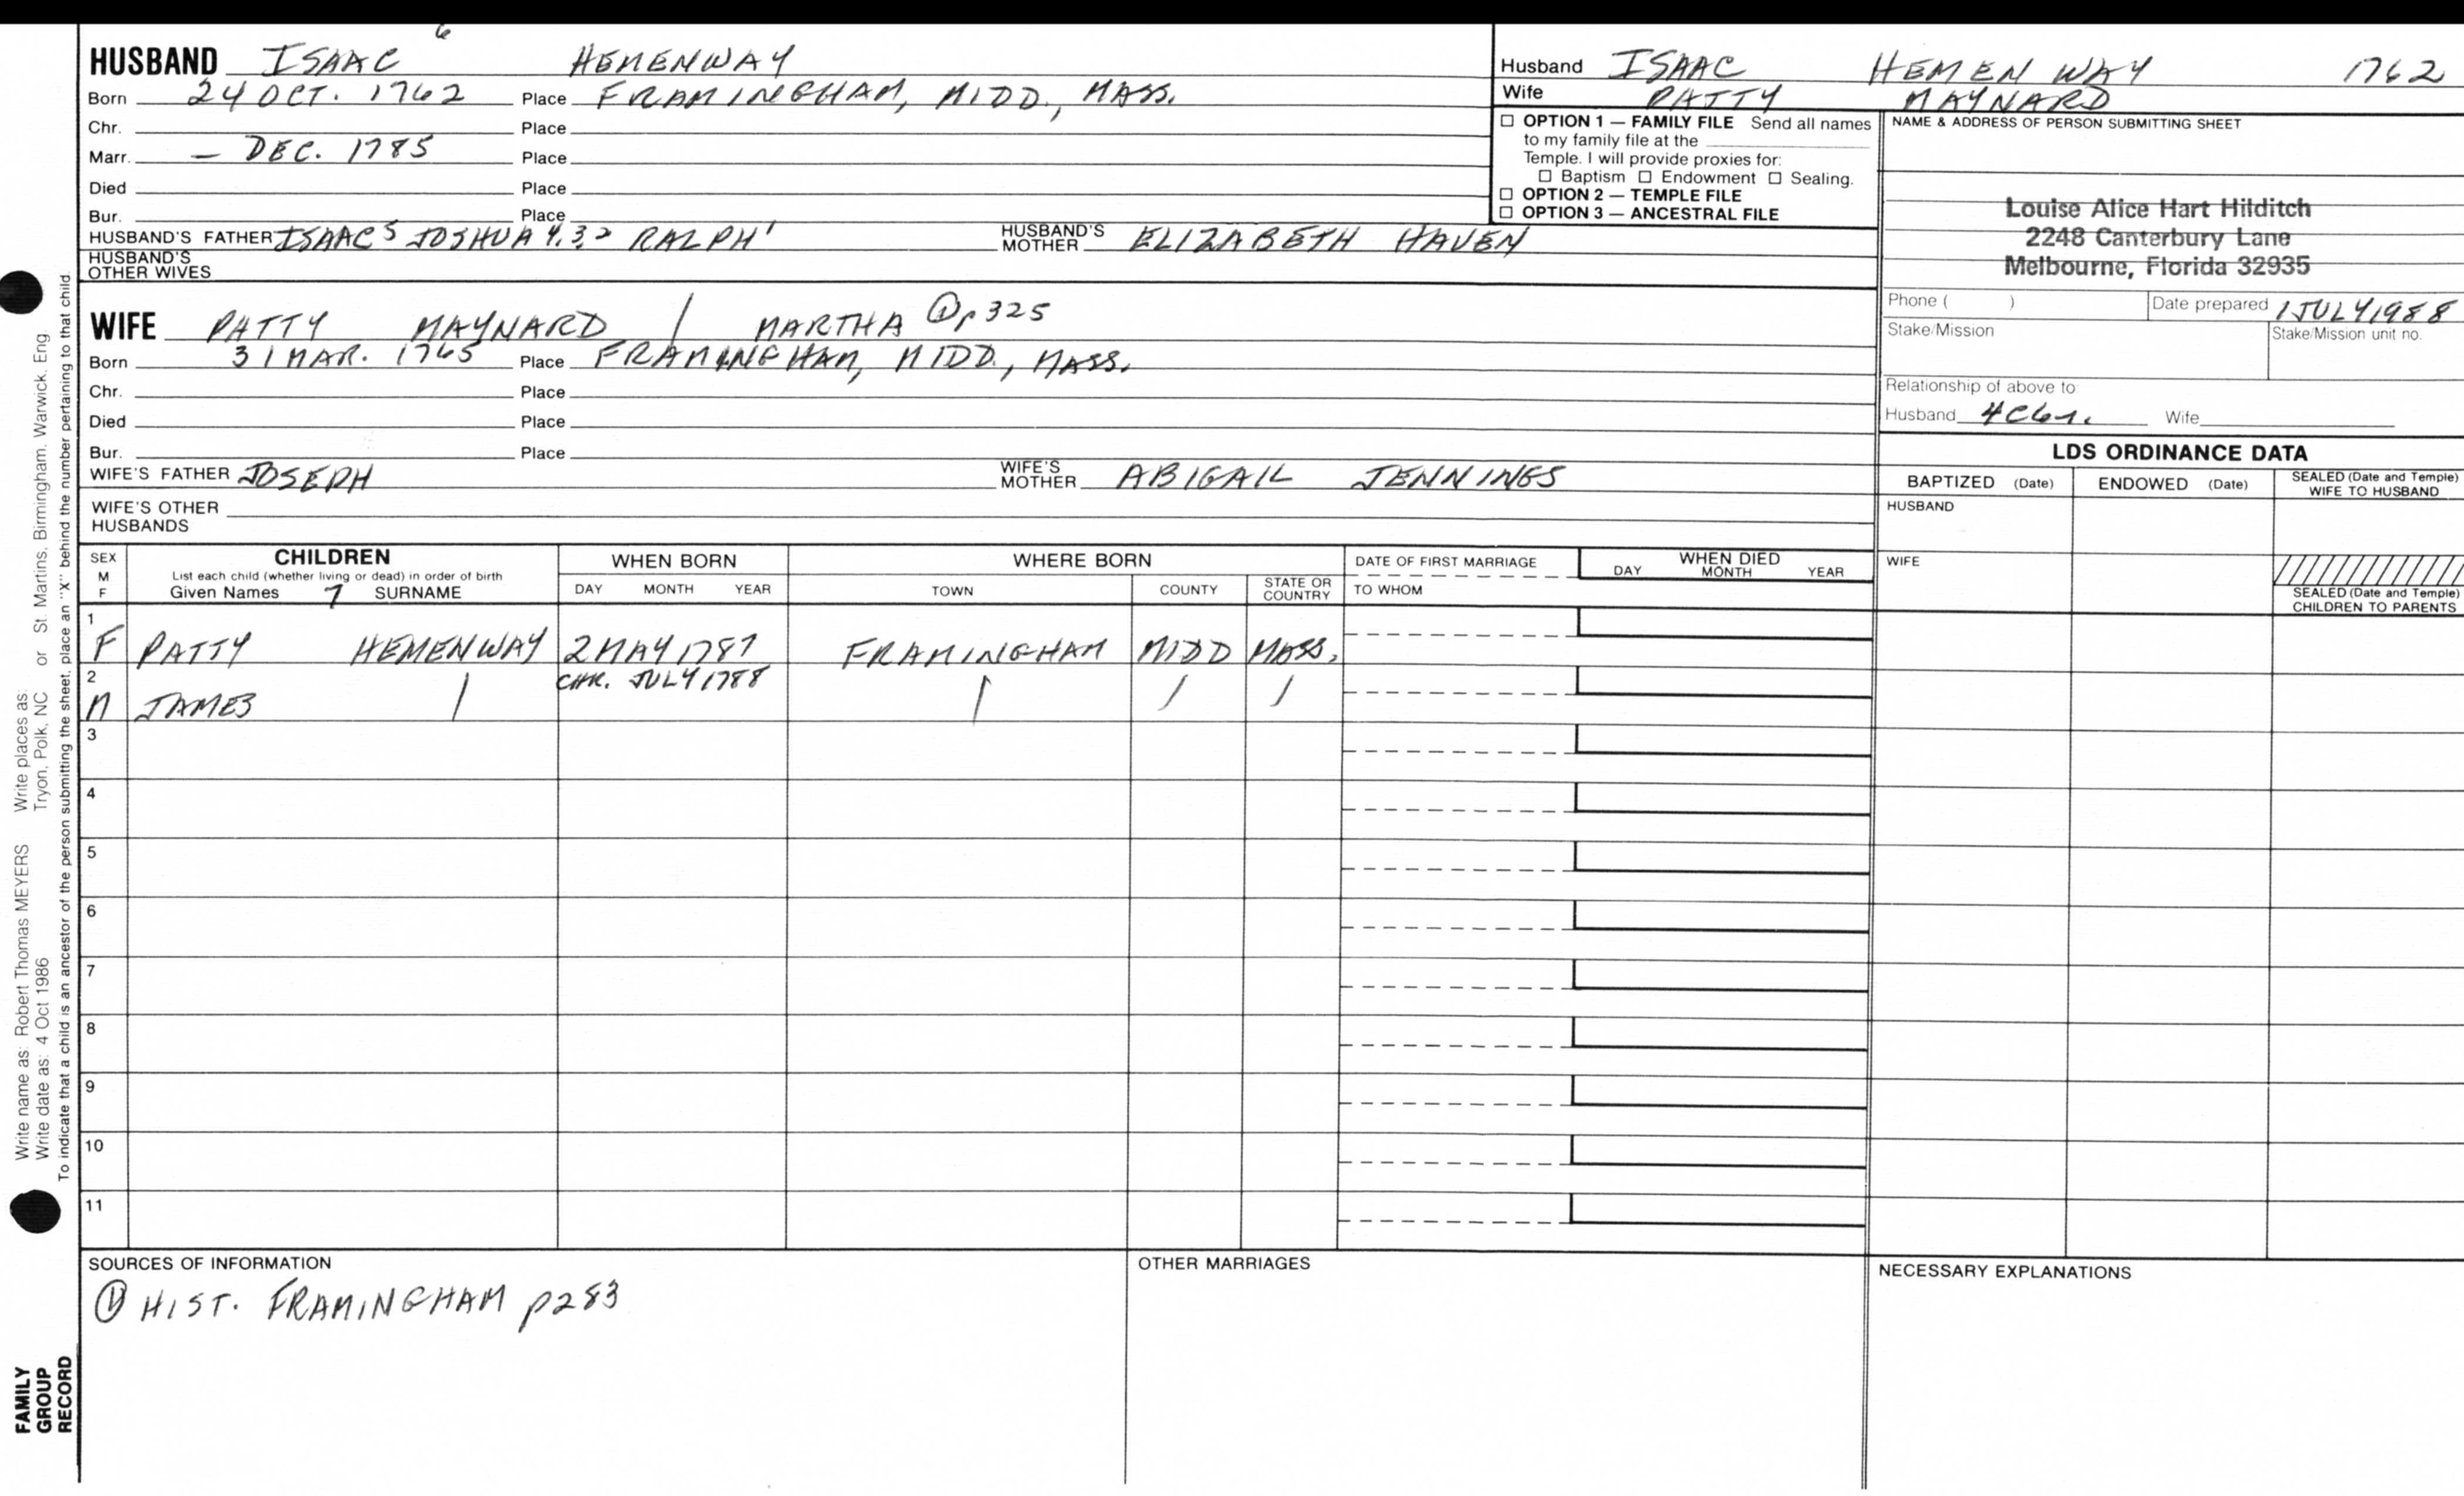 6
HUSBAND ISAAC HEMENWAY
Born 24 OCT. 1762 Place FRAMINGHAM, MIDD., MASS.
Chr. Place
Marr. — DEC. 1785 Place
Died Place
Bur. Place
HUSBAND'S FATHER ISAAC5 JOSHUA 4,3,2 RALPH1 HUSBAND'S MOTHER ELIZABETH HAVEN
HUSBAND'S OTHER WIVES
WIFE PATTY MAYNARD / MARTHA ① p325
Born 31 MAR. 1765 Place FRAMINGHAM, MIDD., MASS.
Chr. Place
Died Place
Bur. Place
WIFE'S FATHER JOSEPH WIFE'S MOTHER ABIGAIL JENNINGS
WIFE'S OTHER HUSBANDS
Husband ISAAC HEMENWAY 1762
Wife PATTY MAYNARD
☐ OPTION 1 — FAMILY FILE Send all names
to my family file at the
Temple. I will provide proxies for:
☐ Baptism ☐ Endowment ☐ Sealing.
☐ OPTION 2 — TEMPLE FILE
☐ OPTION 3 — ANCESTRAL FILE
NAME & ADDRESS OF PERSON SUBMITTING SHEET
Louise Alice Hart Hilditch
2248 Canterbury Lane
Melbourne, Florida 32935
Phone ( ) Date prepared 1 JULY 1988
Stake/Mission Stake/Mission unit no.
Relationship of above to:
Husband 4C6r. Wife
LDS ORDINANCE DATA
BAPTIZED (Date) ENDOWED (Date) SEALED (Date and Temple) WIFE TO HUSBAND
HUSBAND
WIFE
SEALED (Date and Temple) CHILDREN TO PARENTS
SEX M F
CHILDREN
List each child (whether living or dead) in order of birth
Given Names 7 SURNAME
WHEN BORN
DAY MONTH YEAR
WHERE BORN
TOWN COUNTY STATE OR COUNTRY
DATE OF FIRST MARRIAGE
TO WHOM
WHEN DIED
DAY MONTH YEAR
1 F PATTY HEMENWAY 2 MAY 1787 FRAMINGHAM MIDD MASS.
2 M JAMES / CHR. JULY 1788 / / /
3
4
5
6
7
8
9
10
11
SOURCES OF INFORMATION
① HIST. FRAMINGHAM p283
OTHER MARRIAGES
NECESSARY EXPLANATIONS
Write name as: Robert Thomas MEYERS Write places as:
Write date as: 4 Oct 1986 Tryon, Polk, NC or St. Martins, Birmingham, Warwick, Eng
To indicate that a child is an ancestor of the person submitting the sheet, place an "X" behind the number pertaining to that child.
FAMILY
GROUP
RECORD